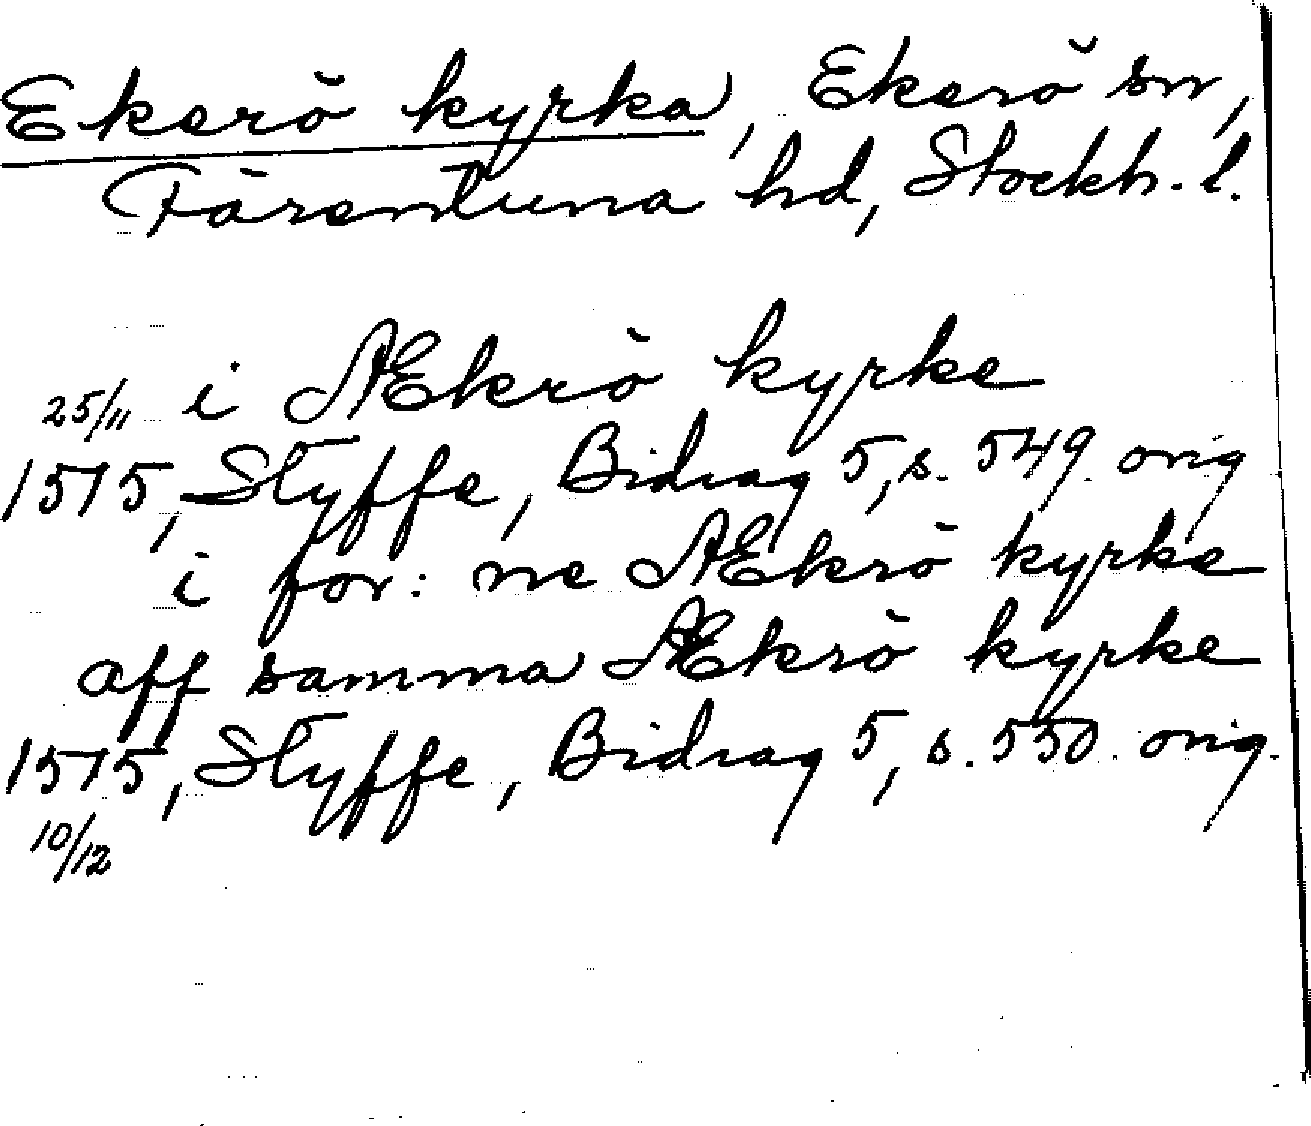 Ekerö kyrka, Ekerö sn,
Färentuna hd, Stockh. l.
25/11 i Ækrö kyrke
1515, Styffe, Bidrag 5, s. 549 orig
i for: ne Ækrö kyrke
aff samma Ækrö kyrke
1515, Styffe, Bidrag 5, s. 550. orig.
10/12